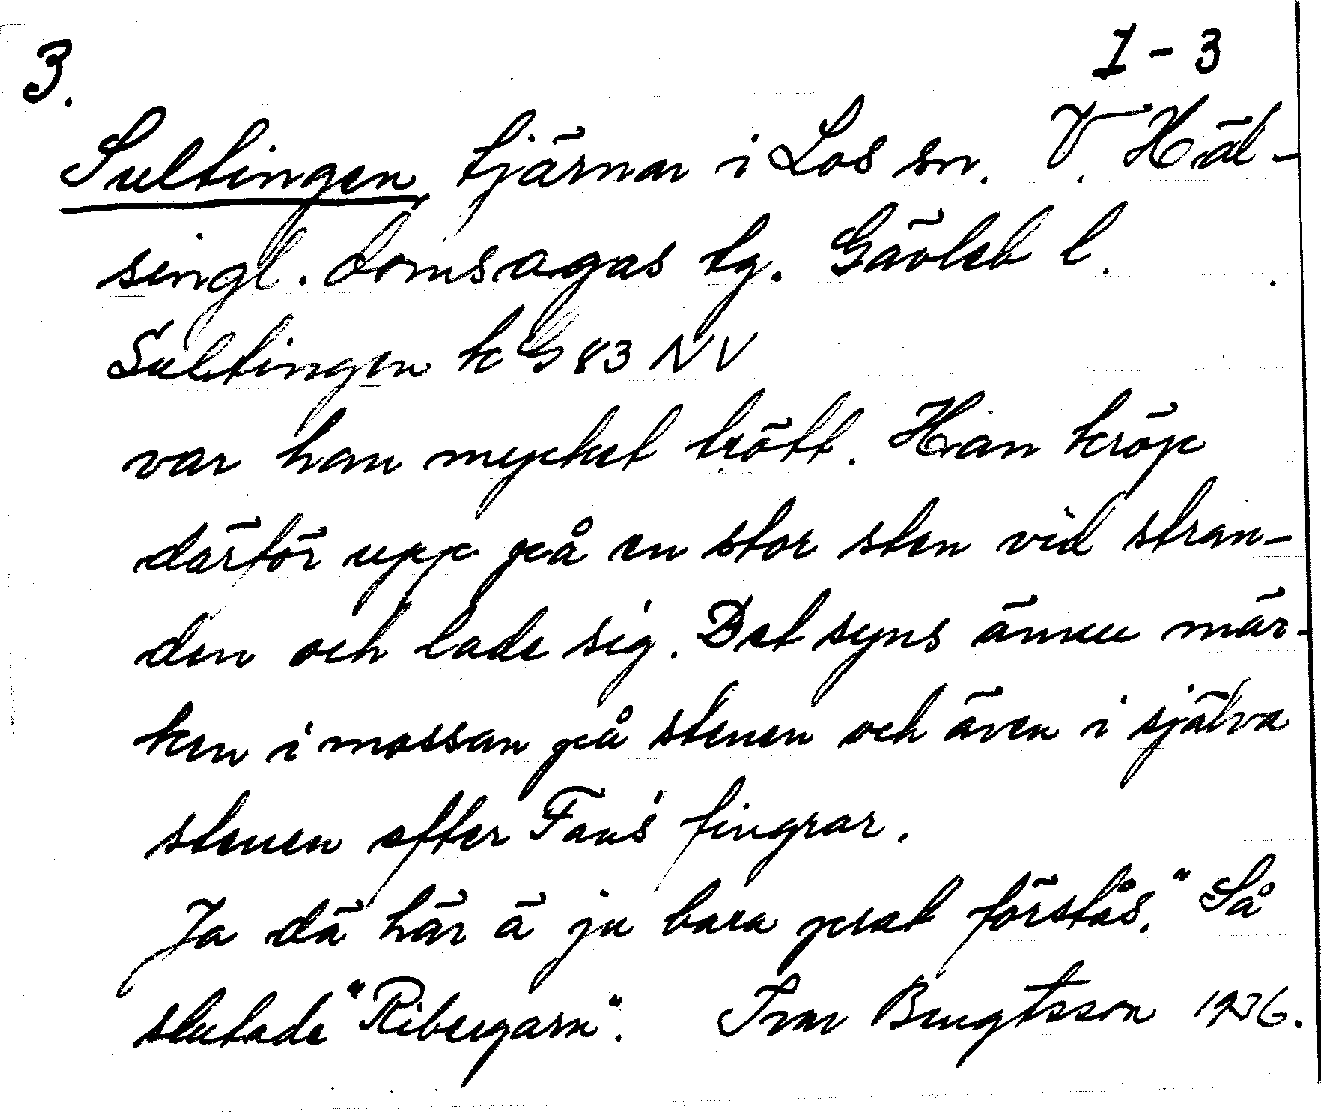 3.
I - 3
Sultingen, tjärnar i Los sn. V. Häl-
singl. domsagas tg. Gävleb l.
Sultingen k G 83 NV
var han mycket trött. Han kröp
därför upp på en stor sten vid stran-
den och lade sig. Det syns ännu mär-
ken i mossan på stenen och även i själva
stenen efter Fans fingrar.
Ja dä här ä ju bara prat förstås." Så
slutade "Ribergarn". Ivar Bengtsson 1936.